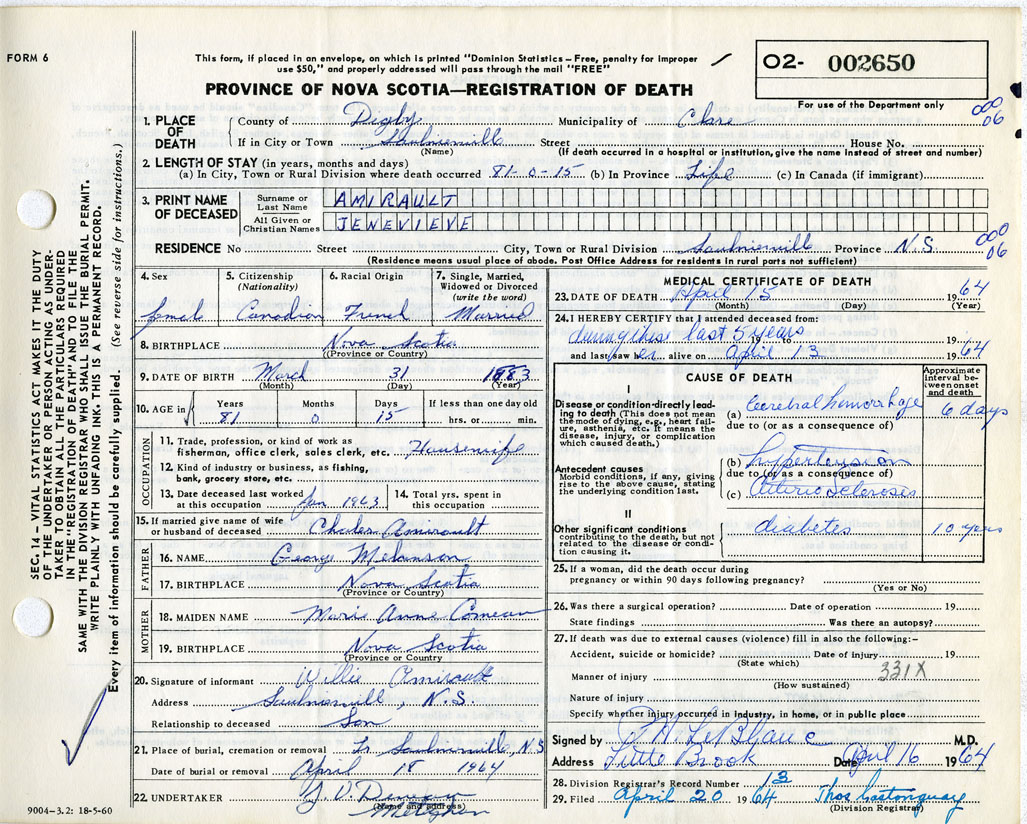 FORM 6
This form, if placed in an envelope, on which is printed "Dominion Statistics – Free, penalty for Improper
use $50," and properly addressed will pass through the mail "FREE"
PROVINCE OF NOVA SCOTIA—REGISTRATION OF DEATH
02- 002650
For use of the Department only
000
06
1. PLACE OF DEATH
County of Digby Municipality of Clare
If in City or Town Saulnierville Street House No.
(Name) (If death occurred in a hospital or institution, give the name instead of street and number)
2. LENGTH OF STAY (in years, months and days)
(a) In City, Town or Rural Division where death occurred 81-0-15 (b) In Province Life (c) In Canada (if immigrant)
3. PRINT NAME OF DECEASED
Surname or Last Name AMIRAULT
All Given or Christian Names JENEVIEVE
RESIDENCE No Street City, Town or Rural Division Saulnierville Province N.S.
000
06
(Residence means usual place of abode. Post Office Address for residents in rural parts not sufficient)
4. Sex
5. Citizenship
(Nationality)
6. Racial Origin
7. Single, Married, Widowed or Divorced
(write the word)
Canadian French Married
8. BIRTHPLACE Nova Scotia
(Province or Country)
9. DATE OF BIRTH March 31 1883
(Month) (Day) (Year)
10. AGE in
Years Months Days If less than one day old
81 0 15 hrs. or min.
OCCUPATION
11. Trade, profession, or kind of work as
fisherman, office clerk, sales clerk, etc. Housewife
12. Kind of industry or business, as fishing,
bank, grocery store, etc.
13. Date deceased last worked
at this occupation Jan 1963
14. Total yrs. spent in
this occupation
15. If married give name of wife
or husband of deceased Charles Amirault
FATHER
16. NAME George Melanson
17. BIRTHPLACE Nova Scotia
(Province or Country)
MOTHER
18. MAIDEN NAME Marie Anne Comeau
19. BIRTHPLACE Nova Scotia
(Province or Country)
20. Signature of informant Willie Amirault
Address Saulnierville, N.S.
Relationship to deceased Son
21. Place of burial, cremation or removal Saulnierville, N.S
Date of burial or removal April 18 1964
22. UNDERTAKER
(Name and address)
Meteghan
9004-3.2: 18-5-60
MEDICAL CERTIFICATE OF DEATH
23. DATE OF DEATH April 15 1964
(Month) (Day) (Year)
24. I HEREBY CERTIFY that I attended deceased from:
during these last 5 years 19 to 19
and last saw her alive on April 13 1964
CAUSE OF DEATH
Approximate interval between onset and death
I
Disease or condition directly leading to death (This does not mean the mode of dying, e.g., heart failure, asthenia, etc. It means the disease, injury, or complication which caused death.)
(a) Cerebral hemorrhage 6 days
due to (or as a consequence of)
Antecedent causes
Morbid conditions, if any, giving rise to the above cause, stating the underlying condition last.
(b) hypertension
due to (or as a consequence of)
(c) Arterio Sclerosis
II
Other significant conditions
contributing to the death, but not related to the disease or condition causing it.
diabetes 10 years
25. If a woman, did the death occur during
pregnancy or within 90 days following pregnancy?
(Yes or No)
26. Was there a surgical operation? Date of operation 19
State findings Was there an autopsy?
27. If death was due to external causes (violence) fill in also the following:–
Accident, suicide or homicide? Date of injury 19
(State which)
331X
Manner of injury
(How sustained)
Nature of injury
Specify whether injury occurred in industry, in home, or in public place
Signed by P.H. LeBlanc M.D.
Address Little Brook Date April 16 1964
28. Division Registrar's Record Number 13
29. Filed April 20 1964 Thos Castonguay
(Division Registrar)
SEC. 14 – VITAL STATISTICS ACT MAKES IT THE DUTY
OF THE UNDERTAKER OR PERSON ACTING AS UNDER-
TAKER TO OBTAIN ALL THE PARTICULARS REQUIRED
IN THE "REGISTRATION OF DEATH" AND TO FILE THE
SAME WITH THE DIVISION REGISTRAR WHO SHALL ISSUE THE BURIAL PERMIT.
WRITE PLAINLY WITH UNFADING INK. THIS IS A PERMANENT RECORD.
Every item of information should be carefully supplied. (See reverse side for instructions.)